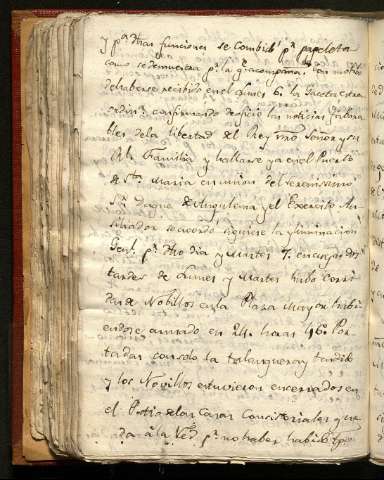 y p.ª dhas funciones se Combidó p.r papeleta
como se demuestra p.r la q.e acompaña. Con motivo
de haberse recibido en el Lunes 6. la Gaceta extra
ordin.ª confirmando de oficio las noticias favora
bles de la libertad del Rey nro Señor y su
Rl. Familia y hallarse ya en el Puerto
de S.ta Maria en union del Serenisimo
S.r Duque de Angulema y el Exercito
se acordó siguiese la yluminacion
Gen.l p.r dho dia y Martes 7. en cuyas dos
tardes de Lunes y Martes hubo Corri
das de Nobillos en la Plaza Mayor habi
endose armado en 24. horas 46. Por
tadas con solo la talanquera y tendido
y los Novillos estuvieron encerrados en
el Patio de las Casas Consistoriales y
p.r no haber habido